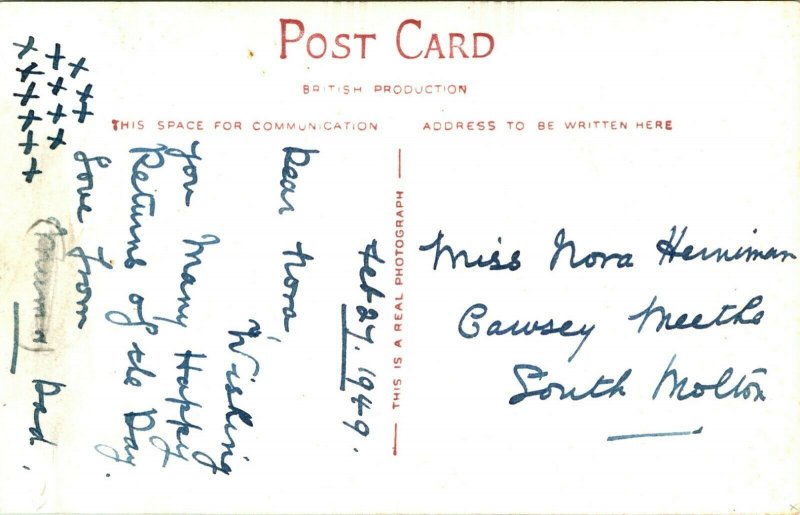 POST CARD
BRITISH PRODUCTION
THIS SPACE FOR COMMUNICATION
ADDRESS TO BE WRITTEN HERE
THIS IS A REAL PHOTOGRAPH
Feb 27. 1949.
Dear Nora,
Wishing
You Many Happy
Returns of the Day.
Love from
(Mum &) Dad.
+++
++++
++++++
Miss Nora Herniman
Cawsey Meethe
South Molton